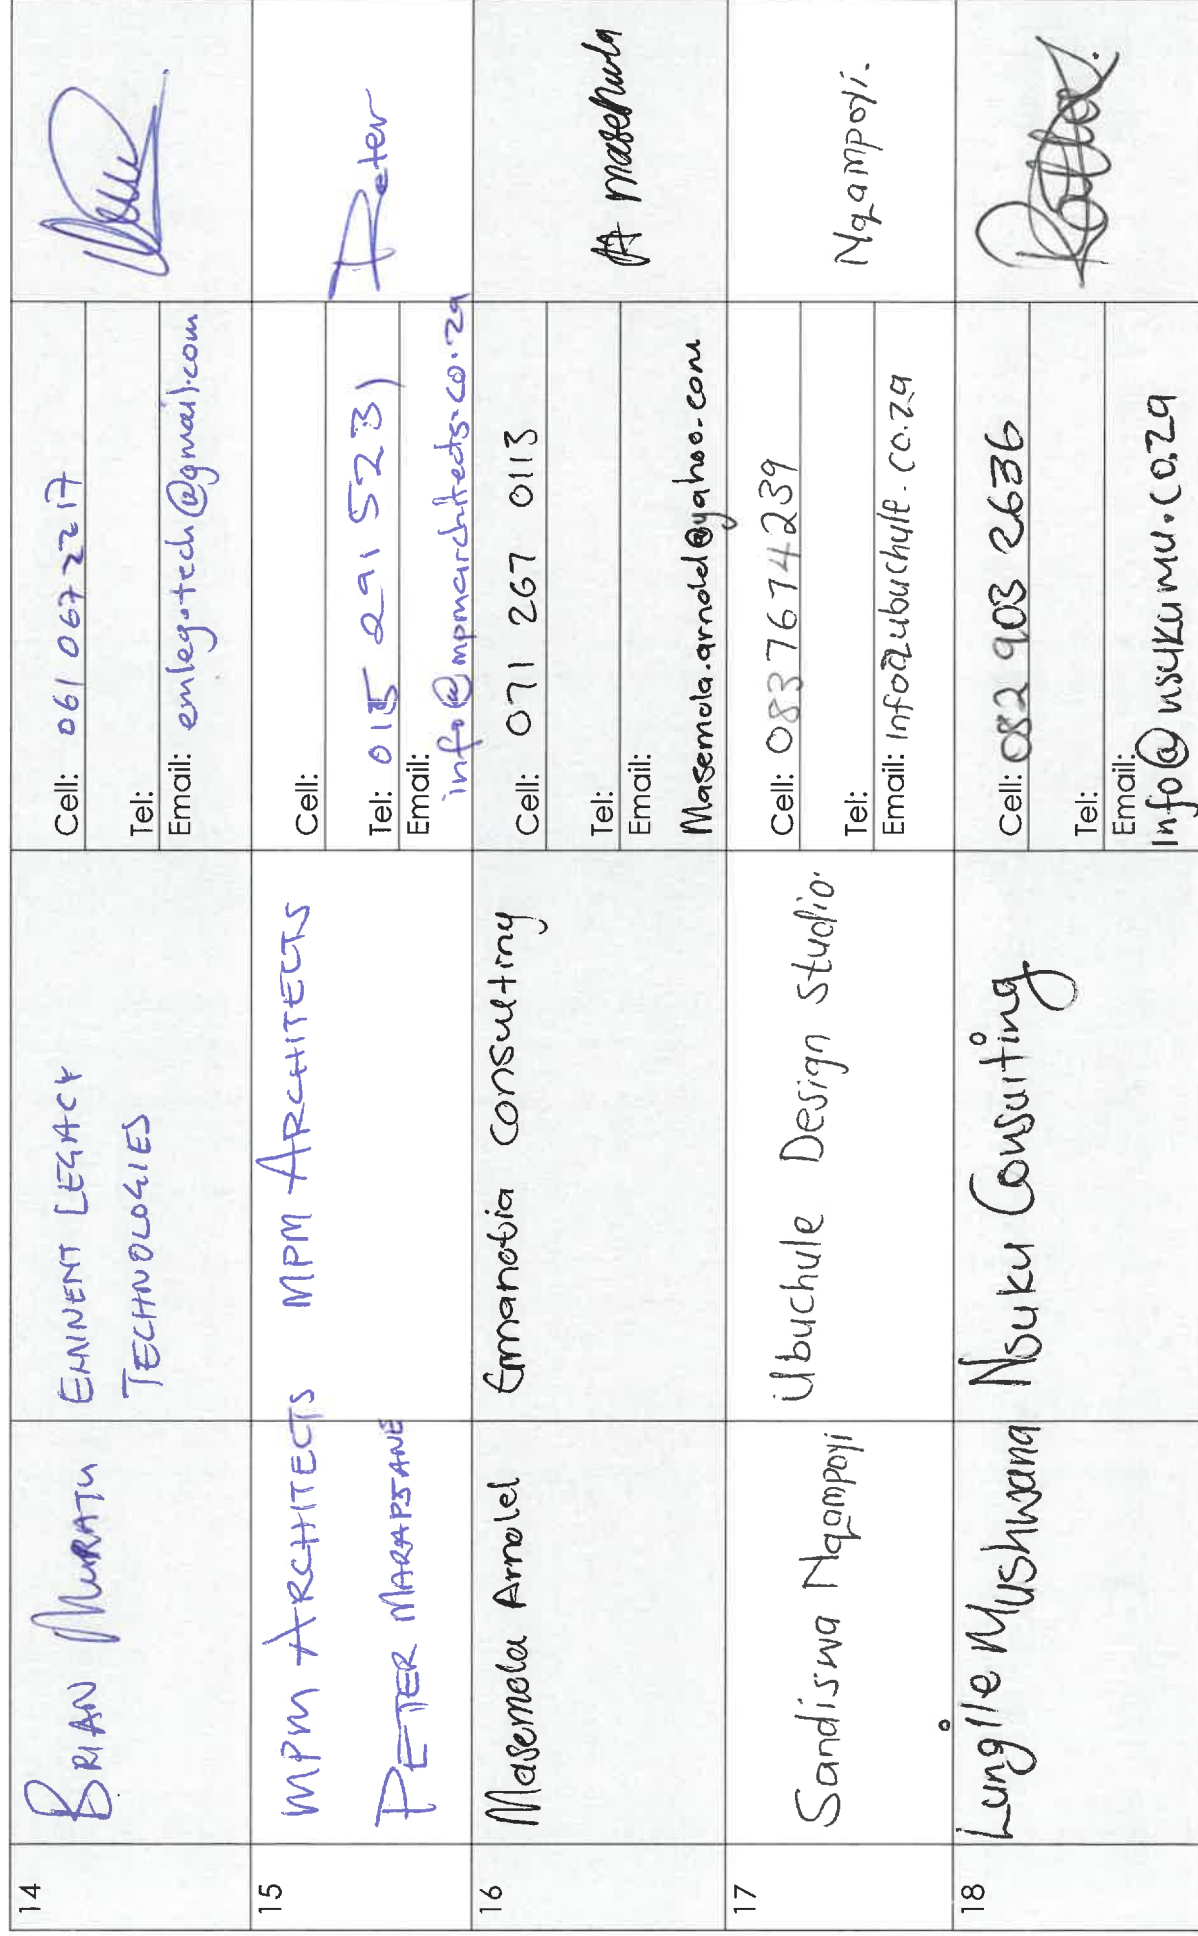 14
BRIAN MURATU
EMINENT LEGACY
TECHNOLOGIES
Cell: 061 067 2217
Tel:
Email: emlegotech@gmail.com
15
MPM ARCHITECTS
PETER MARAPJANE
MPM ARCHITECTS
Cell:
Tel: 015 291 5231
Email:
info@mpmarchitects.co.za
Peter
16
Masemola Arnold
Emanobia Consulting
Cell: 071 267 0113
Tel:
Email:
Masemola.arnold@yahoo.com
A Masemola
17
Sandiswa Nqampoyi
Ubuchule Design Studio.
Cell: 0837674239
Tel:
Email: info@ubuchule.co.za
Nqampoyi.
18
Lungile Mushwana
Nsuku Consulting
Cell: 082 903 2636
Tel:
Email:
info@nsukumu.co.za